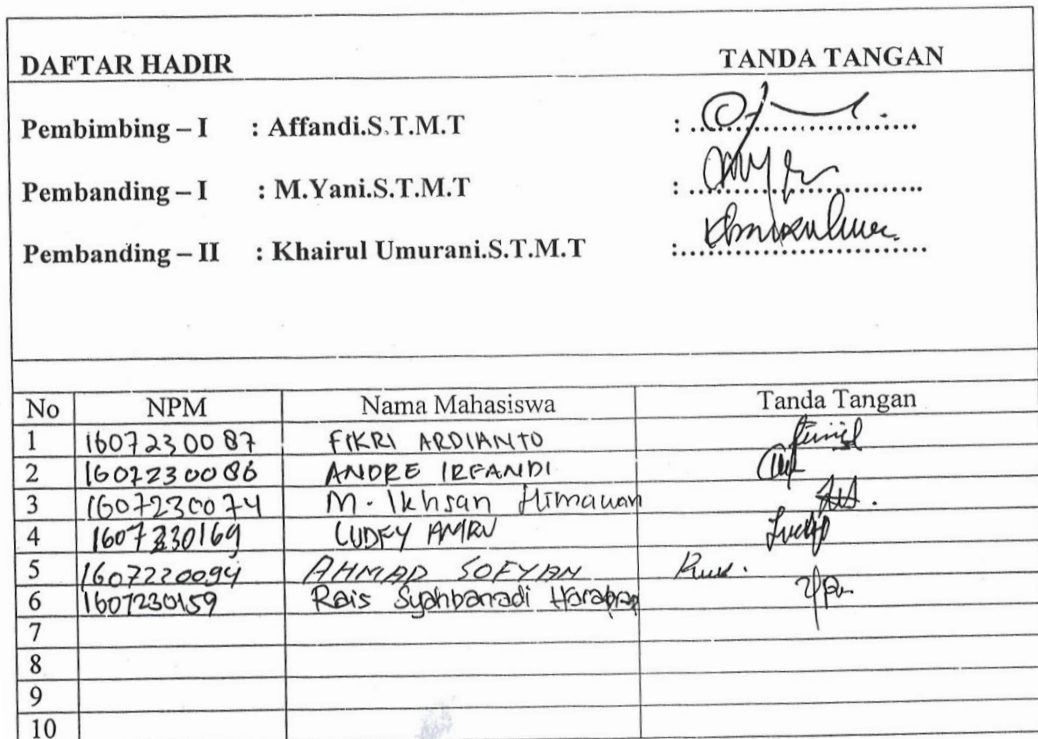 DAFTAR HADIR TANDA TANGAN
Pembimbing – I : Affandi.S.T.M.T : ..............................
Pembanding – I : M.Yani.S.T.M.T : ..............................
Pembanding – II : Khairul Umurani.S.T.M.T :..............................
No NPM Nama Mahasiswa Tanda Tangan
1 1607230087 FIKRI ARDIANTO
2 1607230086 ANDRE IRFANDI
3 1607230074 M. Ikhsan Himawan
4 1607230169 LUDFY AMRU
5 1607220094 AHMAD SOFYAN
6 1607230159 Rais Syahbanadi Harahap
7
8
9
10